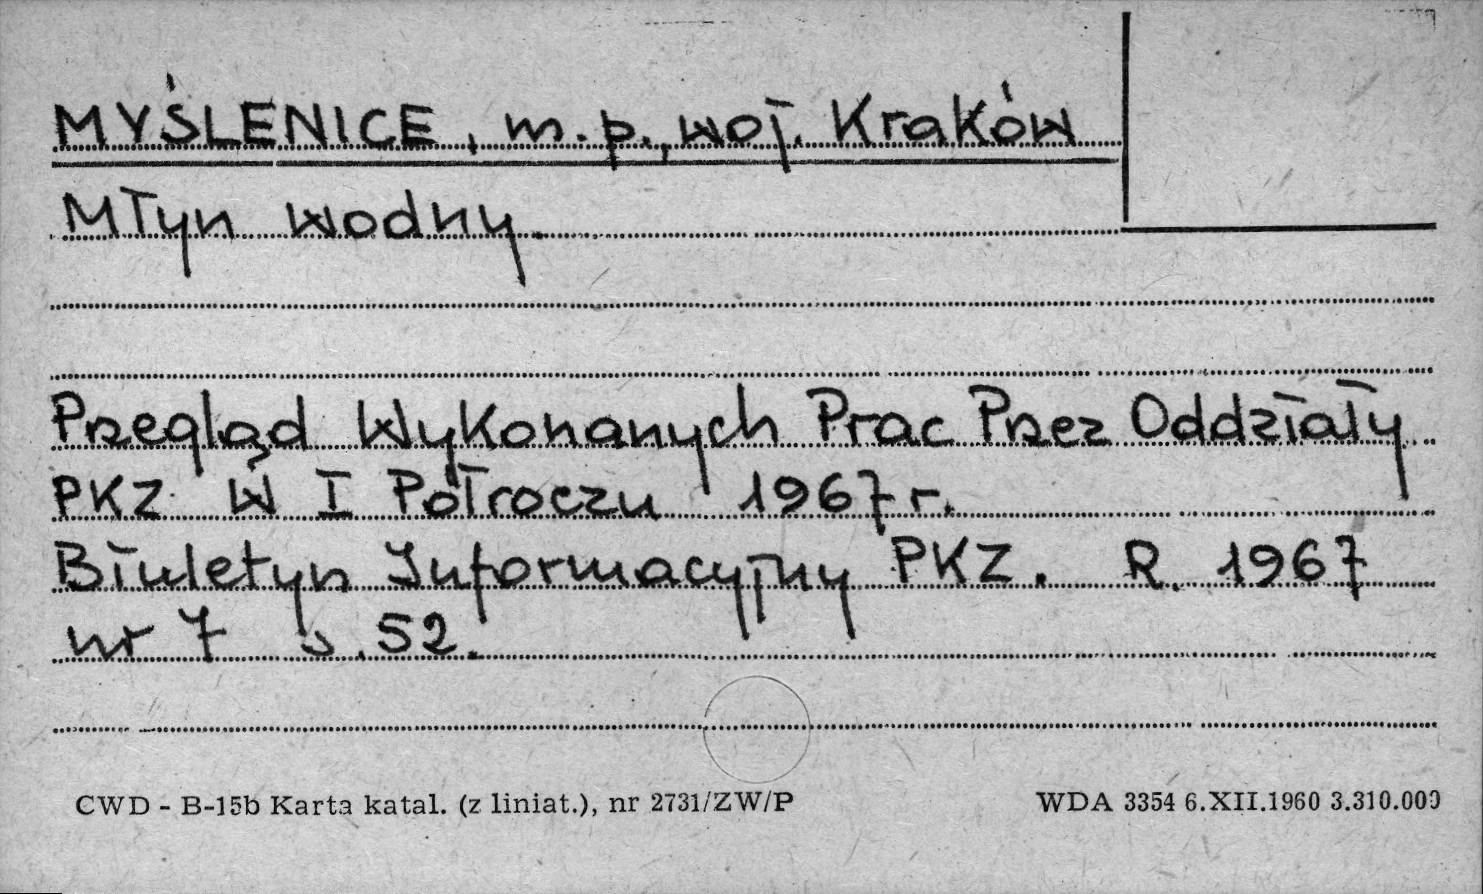 MYŚLENICE, m.p., woj. Kraków
Młyn wodny.
Przegląd Wykonanych Prac Przez Oddziały
PKZ W I Półroczu 1967 r.
Biuletyn Informacyjny PKZ. R. 1967
nr 7 s. 52.
CWD - B-15b Karta katal. (z liniat.), nr 2731/ZW/P
WDA 3354 6.XII.1960 3.310.000